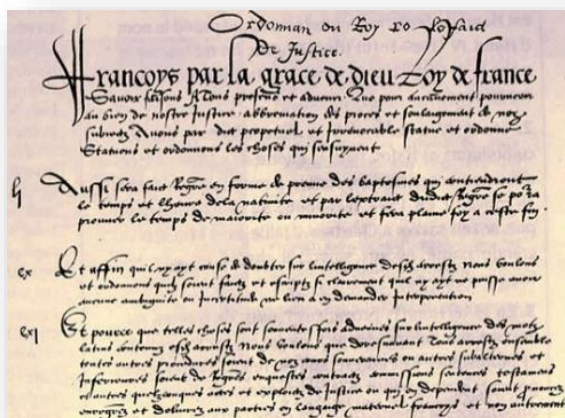 Ordonnan du Roy
de Justice.
Francoys par la grace de dieu Roy de france
Savoir faisons A tous presens et advenir Que pour aucunement pourveoir
au bien de nostre Justice abbreviation des proces et soulagement de noz
subiectz Avons par edict perpetuel et irrevocable statue et ordonne
Statuons et ordonnons les choses qui sensuyvent
li Aussi sera faict Registre en forme de preuve des baptesmes qui contiendront
le temps et lheure de la nativite et par lextraict dudict Registre se pourra
prouver le temps de maiorite ou minorite et fera plaine foy a ceste fin
cx Et affin quil ny ayt cause de doubter sur lintelligence desdictz arrestz Nous voulons
et ordonnons quilz soient faictz et escriptz si clairement quil ny ayt ne puisse avoir
aucune ambiguite ou incertitude ne lieu a en demander Interpretation
cxi Et pource que telles choses sont souventesfois advenues sur lintelligence des motz
latins contenuz esdictz arrestz Nous voulons que doresnavant Tous arrestz ensemble
toutes autres procedures soient de noz cours souveraines ou autres subalternes et
Inferieures soient de Registres enquestes contractz commissions sentences testamens
et autres quelzconques actes et exploictz de Justice ou qui en dependent soient prononcez
enregistrez et delivrez aux parties en langaige maternel francoys et non autrement